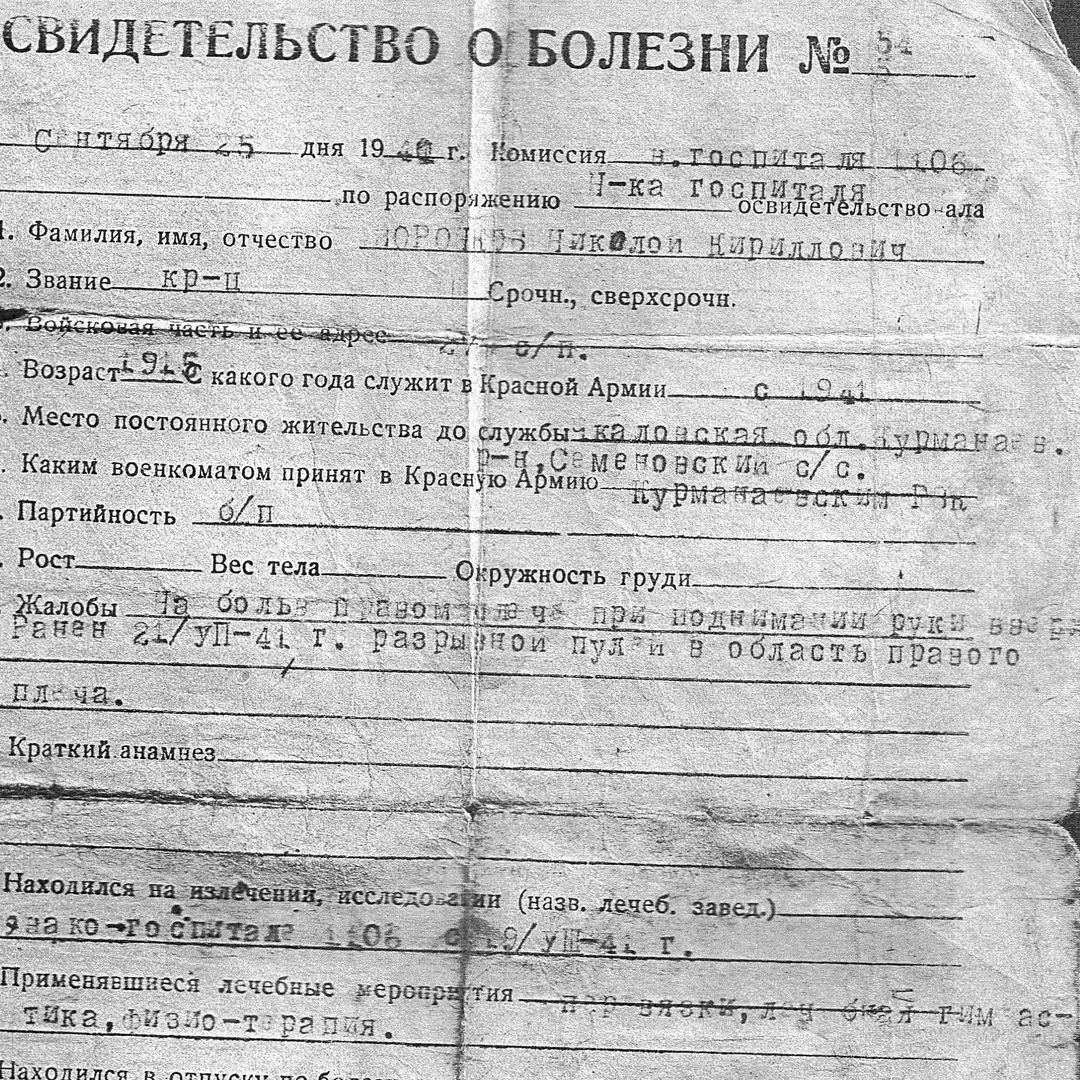 СВИДЕТЕЛЬСТВО О БОЛЕЗНИ № 54
Сентября 25 дня 194 г. Комиссия госпиталя 1106.
по распоряжению Н-ка госпиталя освидетельство-ала
1. Фамилия, имя, отчество Николой Кириллович
2. Звание кр-ц Срочн., сверхсрочн.
Войсковая часть и ее адрес с/п.
Возраст 1915 С какого года служит в Красной Армии с 1941
Место постоянного жительства до службы обл. Курманаев.
р-н, Семеновский с/с.
Каким военкоматом принят в Красную Армию Курманаевским
Партийность б/п
Рост Вес тела Окружность груди
Жалобы На боль в правом плече при поднимании руки вверх
Ранен 21/УП-41 г. разрывной пулей в область правого
плеча.
Краткий анамнез
Находился на излечении, исследовании (назв. лечеб. завед.)
эвако-госпитале 1106 с 19/УШ-41 г.
Применявшиеся лечебные мероприятия перевязки, лечебная гимнас-
тика, физио-терапия.
Находился в отпуску по